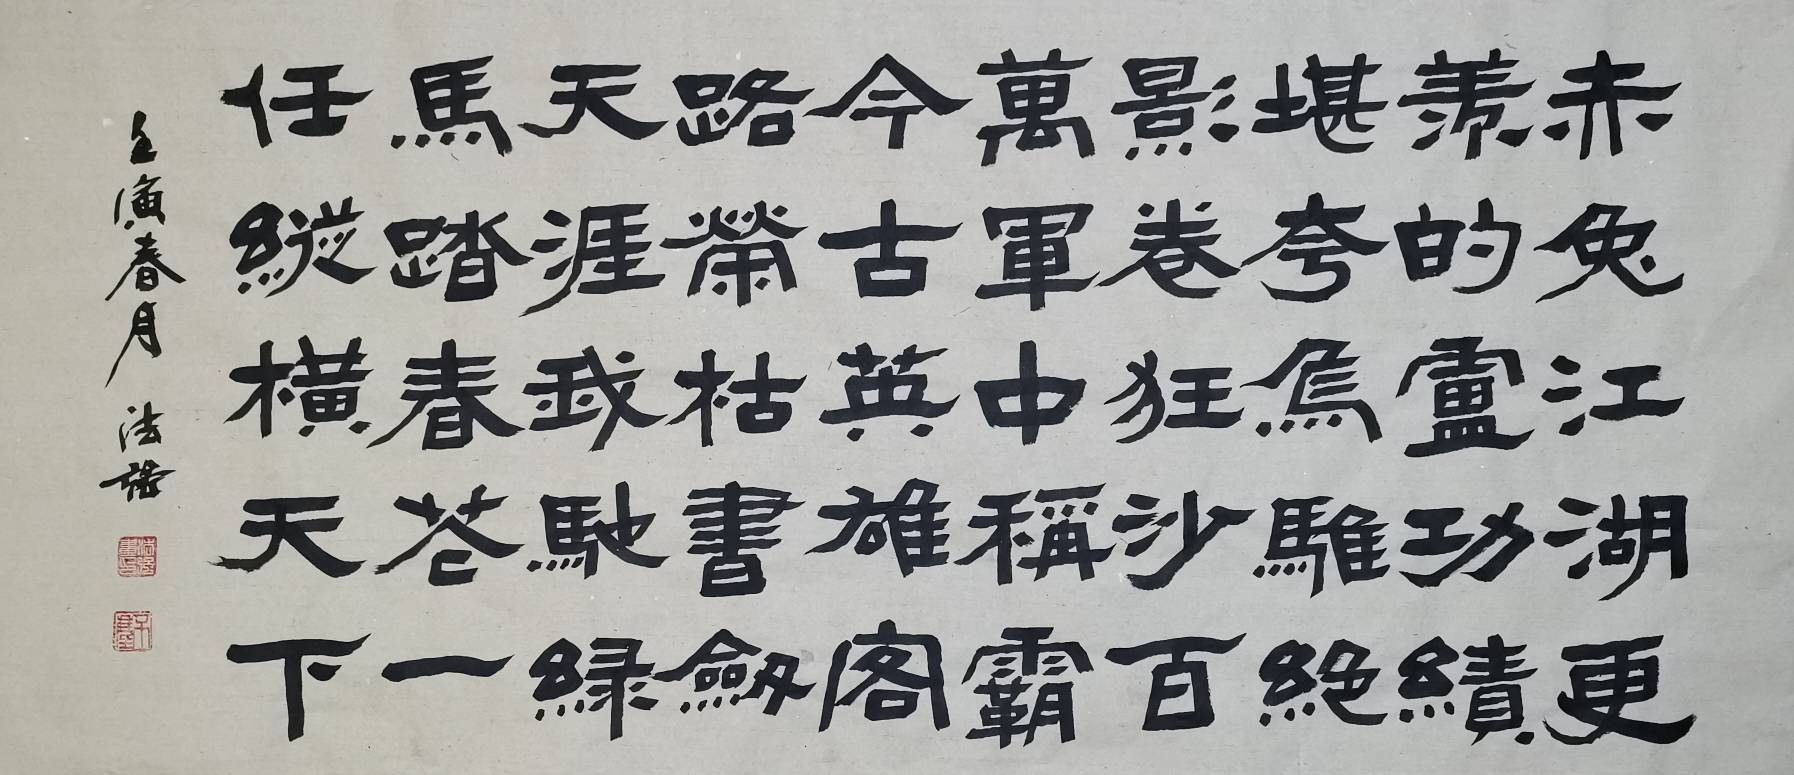 赤兔江湖更
羡的盧功績
堪夸烏騅絶
影卷狂沙百
萬軍中稱霸
今古英雄客
路榮枯書劔
天涯我馳緑
馬踏春花一
任縱橫天下
壬寅春月 法